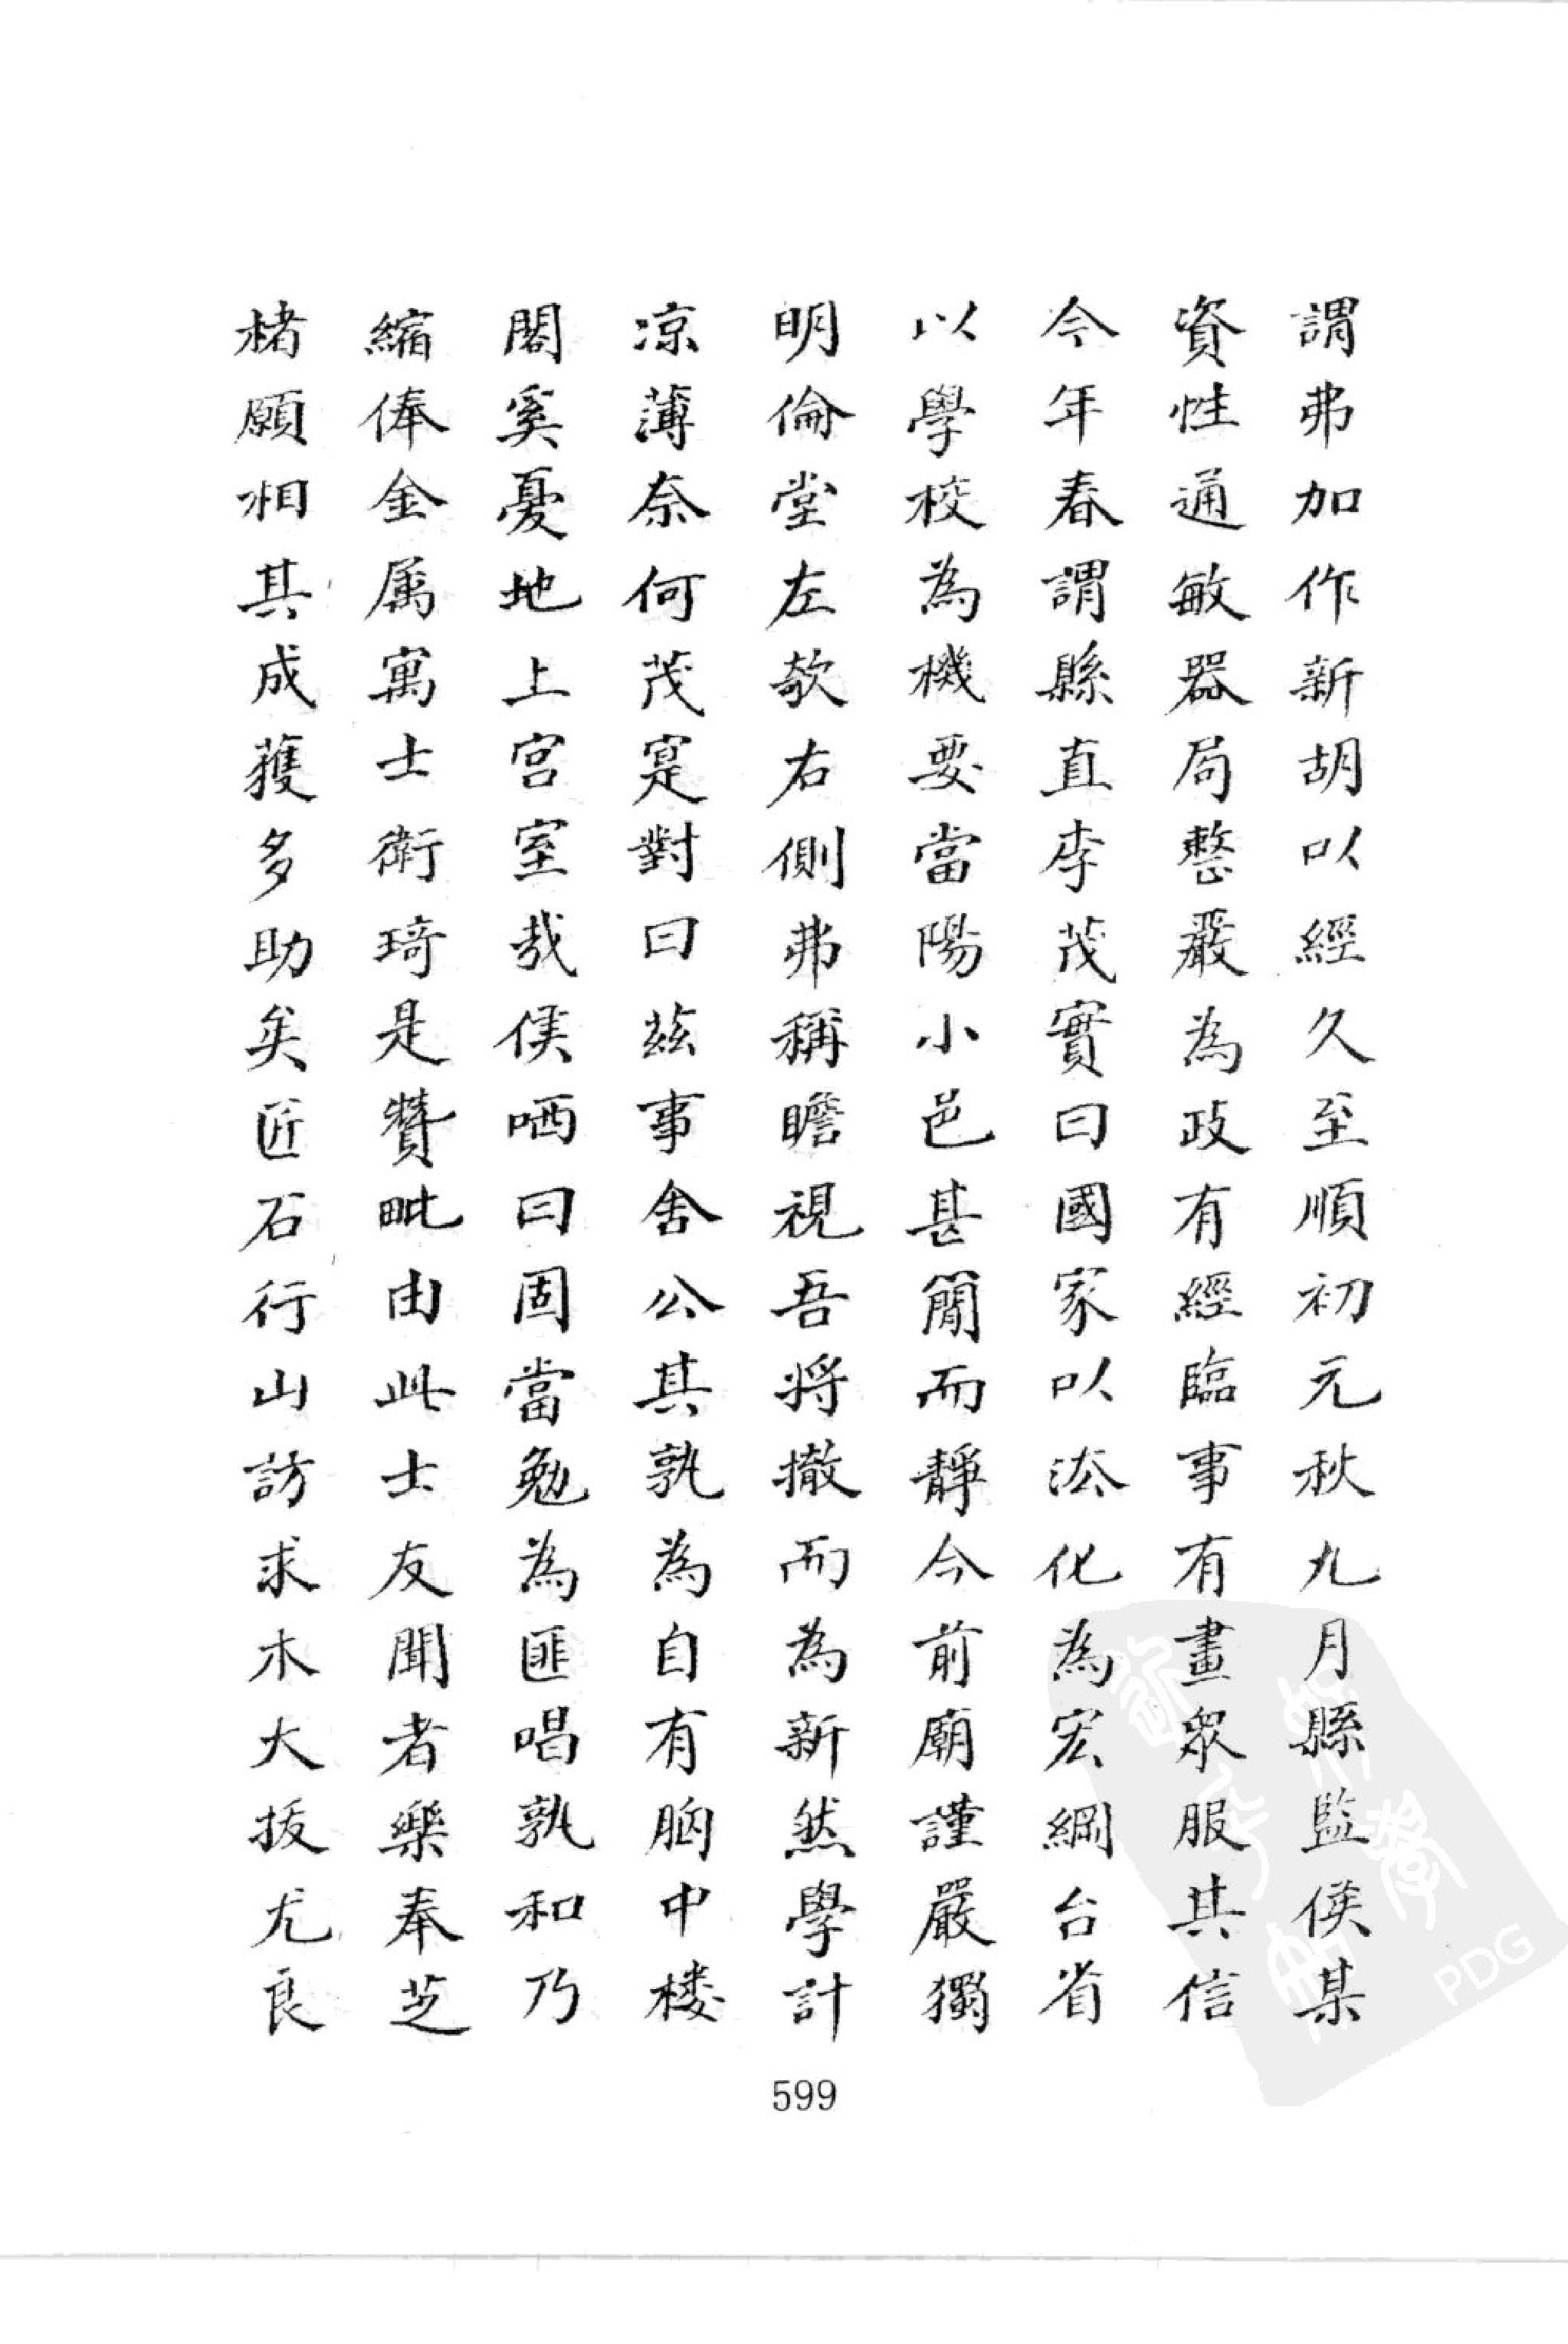 謂弗加作新胡以經久至順初元秋九月縣監侯某
資性通敏器局整嚴為政有經臨事有畫衆服其信
今年春謂縣直李茂實曰國家以汯化為宏綱台省
以學校為機要當陽小邑甚簡而靜今前廟謹嚴獨
明倫堂左欹右側弗稱瞻視吾將撤而為新然學計
凉薄奈何茂寔對曰茲事舍公其孰為自有胸中楼
閣奚憂地上宮室哉侯哂曰固當勉為匪唱孰和乃
縮俸金属寓士衛琦是贊毗由此士友聞者樂奉芝
楮願相其成獲多助矣匠石行山訪求木大拔尤良
599
PDG